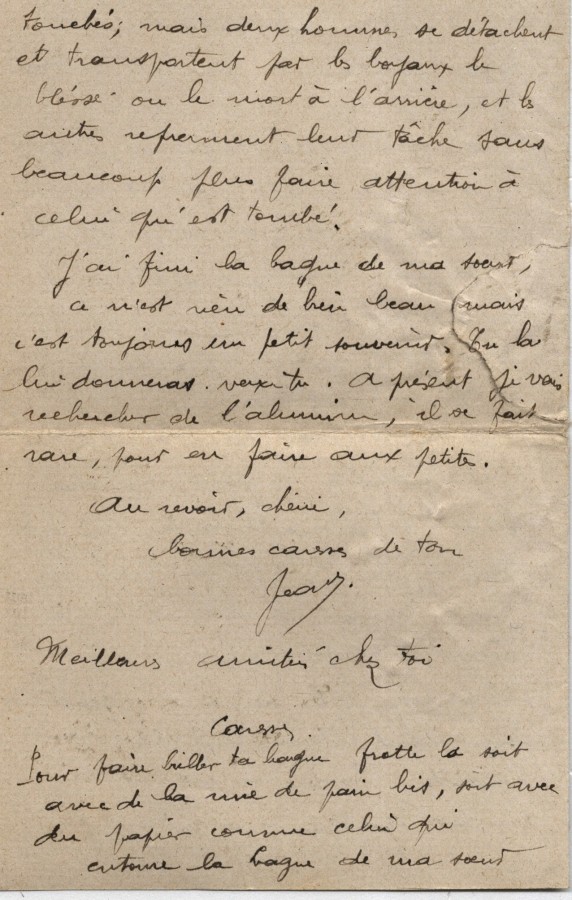 touchés; mais deux hommes se détachent
et transportent par les boyaux le
blessé ou le mort à l'arrière, et les
autres reprennent leur tâche sans
beaucoup plus faire attention à
celui qu'est tombé.
J'ai fini la bague de ma soeur,
ce n'est rien de bien beau mais
c'est toujours un petit souvenir. Tu la
lui donneras veux tu. A présent je vais
rechercher de l'aluminium, il se fait
rare, pour en faire aux petites.
Au revoir, chérie,
bonnes caresses de ton
Jean.
Meilleurs amitiés chez toi
Caresses
Pour faire briller ta bague frotte la soit
avec de la mie de pain bis, soit avec
du papier comme celui qui
entoure la bague de ma soeur